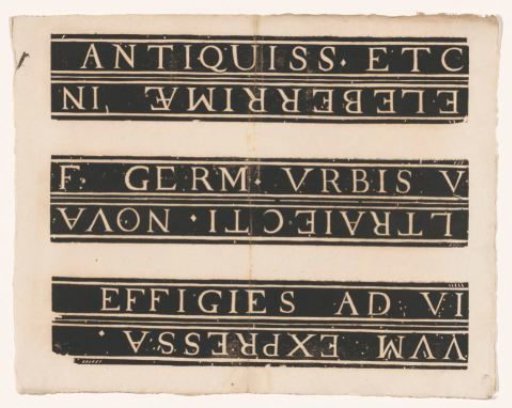 ANTIQUISS. ETC
ELEBERRIMÆ IN
F. GERM. VRBIS V
LTRAIECTI. NOVA
EFFIGIES AD VI
VVM EXPRESSA.